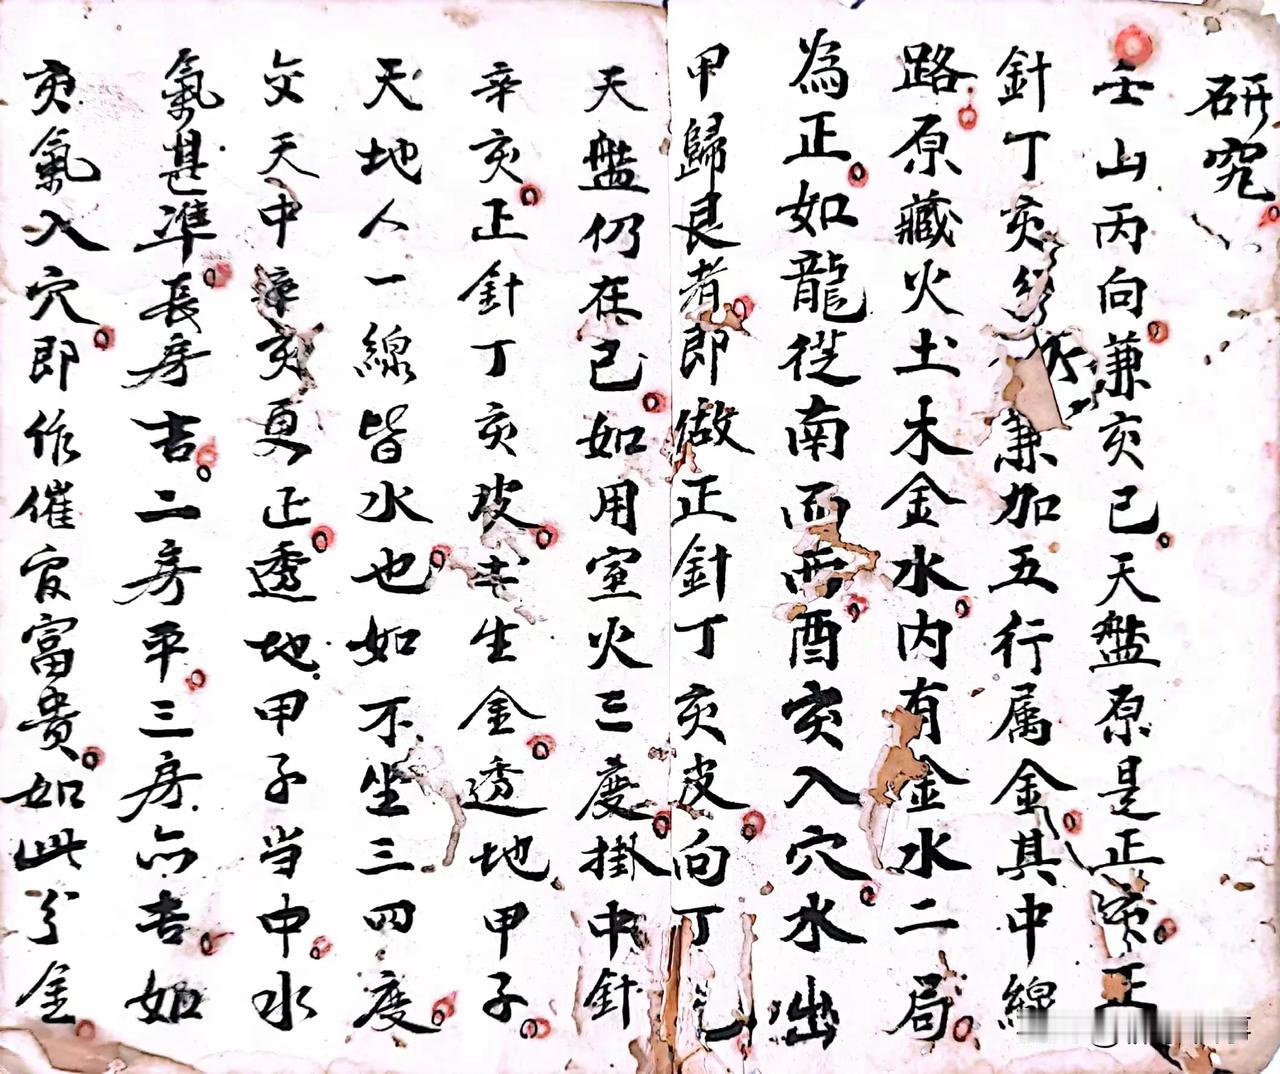 研究
壬山丙向兼亥已天盤原是正亥正
針丁亥兼加五行属金其中線
路原藏火土木金水内有金水二局
為正如龍從南而西酉亥入穴水出
甲歸艮者即做正針丁亥皮向丁
天盤仍在已如用室火三度掛中針
辛亥正針丁亥坡生金透地甲子
天地人一線皆水也如不坐三四度
交天中辛亥更正透地甲子当中水
氣甚準長房吉二房平三房亦吉如
亥氣入穴即作催官富貴如此分金